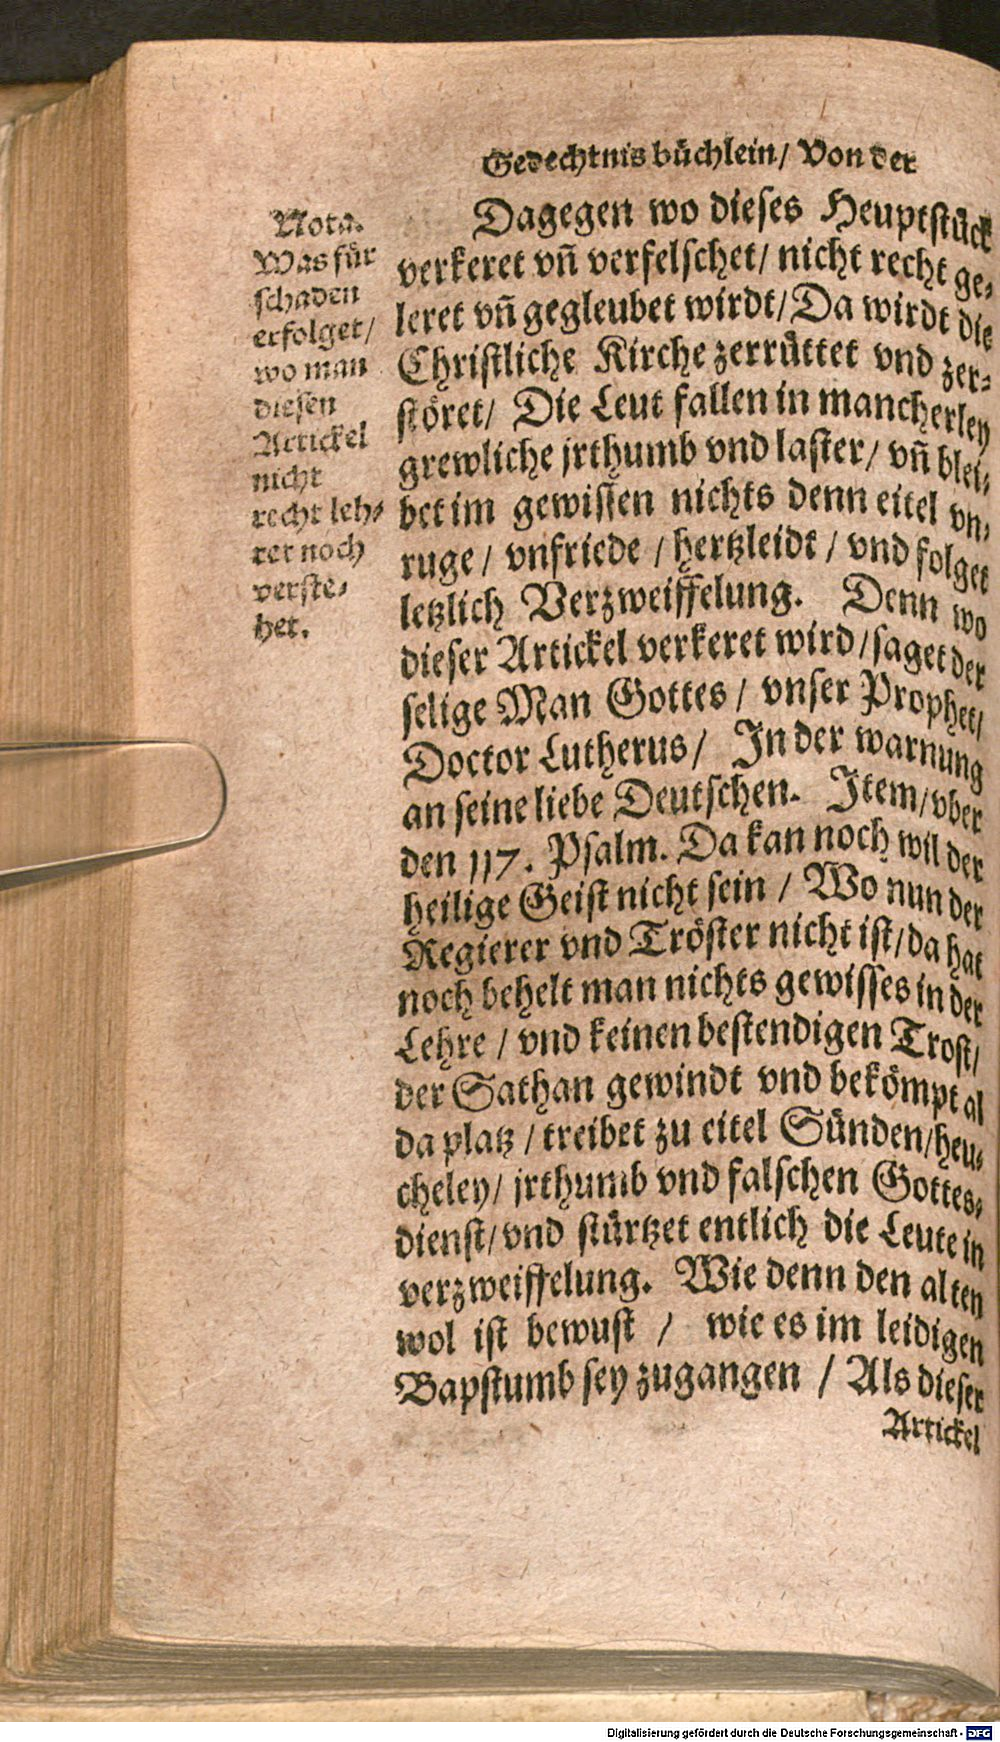 Gedechtnis büchlein/ Von der
Nota.
Was für
schaden
erfolget/
wo man
diesen
Artickel
nicht
recht leh-
ret noch
verste-
het.
Dagegen wo dieses Heuptstück
verkeret vñ verfelschet/ nicht recht ge-
leret vñ gegleubet wirdt/ Da wirdt die
Christliche Kirche zerrüttet vnd zer-
störet/ Die Leut fallen in mancherley
grewliche jrthumb vnd laster/ vñ blei-
bet im gewissen nichts denn eitel vn-
ruge/ vnfriede/ hertzleidt/ vnd folget
letzlich Verzweiffelung. Denn wo
dieser Artickel verkeret wird/ saget der
selige Man Gottes/ vnser Prophet/
Doctor Lutherus/ In der warnung
an seine liebe Deutschen. Item/ vber
den 117. Psalm. Da kan noch wil der
heilige Geist nicht sein/ Wo nun der
Regierer vnd Tröster nicht ist/ da hat
noch behelt man nichts gewisses in der
Lehre/ vnd keinen bestendigen Trost/
der Sathan gewindt vnd bekömpt al
da platz/ treibet zu eitel Sünden/ heu-
cheley/ jrthumb vnd falschen Gottes-
dienst/ vnd stürtzet entlich die Leute in
verzweiffelung. Wie denn den alten
wol ist bewust/ wie es im leidigen
Bapstumb sey zugangen/ Als dieser
Artickel
Digitalisierung gefördert durch die Deutsche Forschungsgemeinschaft - DFG